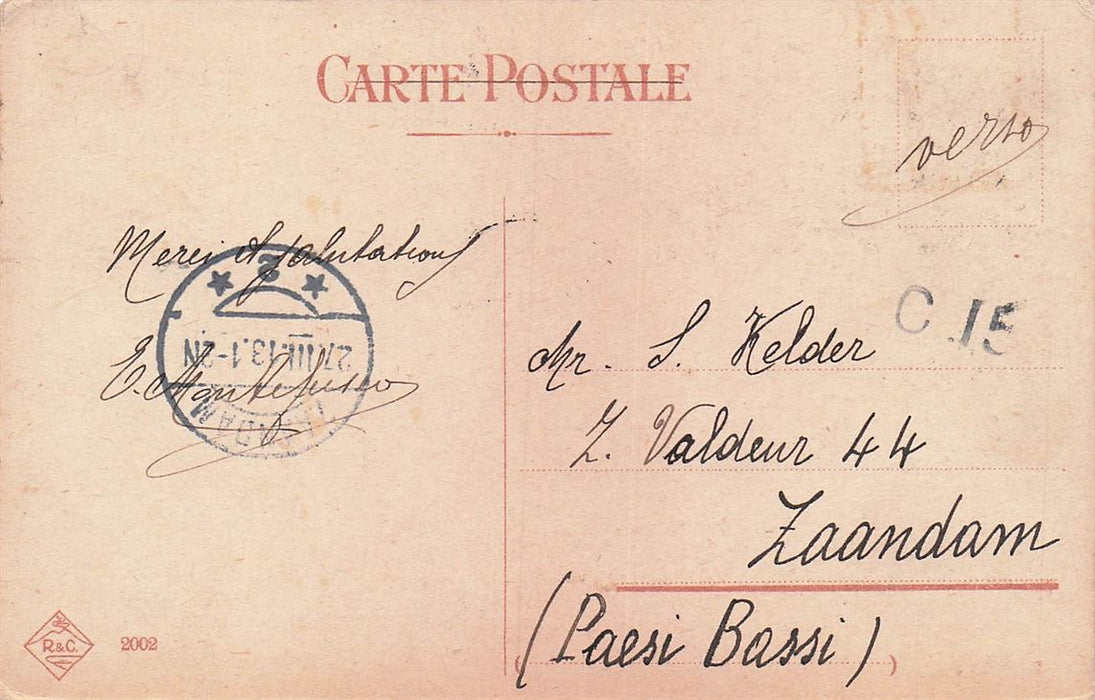 CARTE POSTALE
verso
Merci et salutations
2
27.III.13.1-2N
ZAANDAM
E. Montefusco
C 15
Mr. S. Kelder
Z. Valdeur 44
Zaandam
(Paesi Bassi)
R&C. 2002